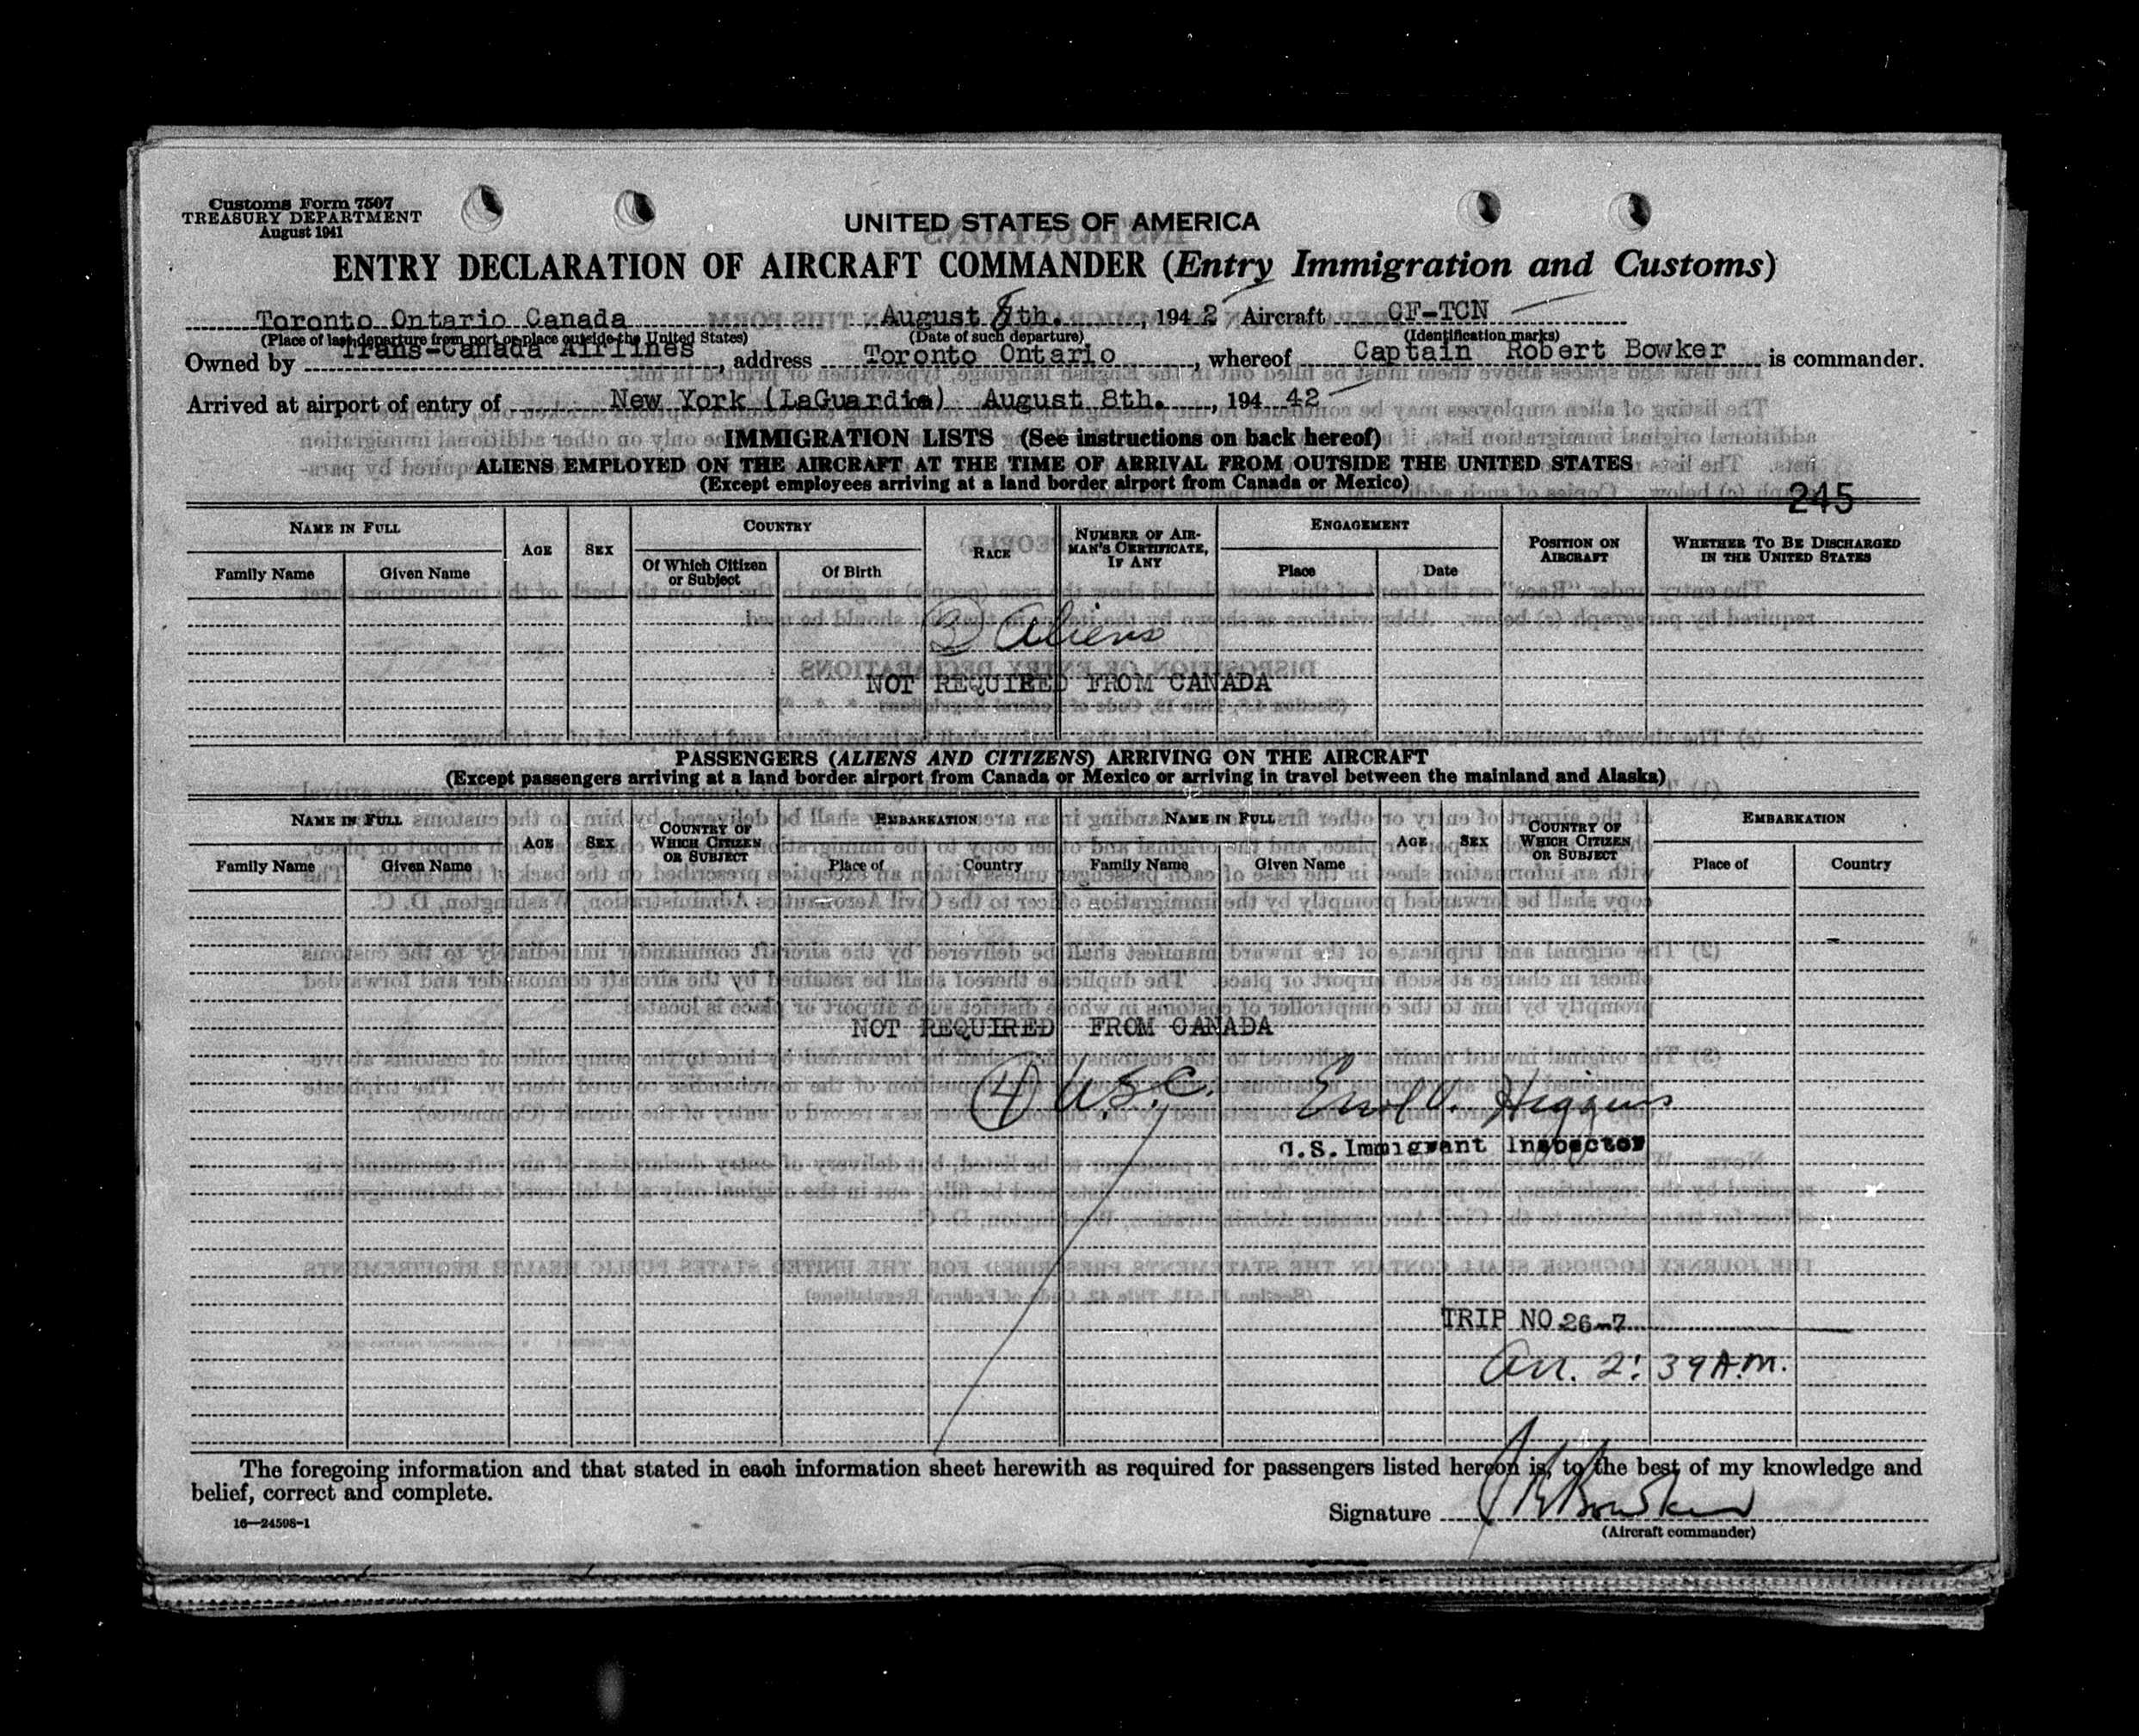 Customs Form 7507
TREASURY DEPARTMENT
August 1941
UNITED STATES OF AMERICA
ENTRY DECLARATION OF AIRCRAFT COMMANDER (Entry Immigration and Customs)
Toronto Ontario Canada August 8th. , 194 2 Aircraft CF-TCN
(Place of last departure from port or place outside the United States) (Date of such departure) (Identification marks)
Owned by Trans-Canada Airlines , address Toronto Ontario , whereof Captain Robert Bowker is commander.
Arrived at airport of entry of New York (LaGuardia) August 8th. , 194 42
IMMIGRATION LISTS (See instructions on back hereof)
ALIENS EMPLOYED ON THE AIRCRAFT AT THE TIME OF ARRIVAL FROM OUTSIDE THE UNITED STATES
(Except employees arriving at a land border airport from Canada or Mexico)
245
NAME IN FULL AGE SEX COUNTRY RACE NUMBER OF AIR-MAN'S CERTIFICATE, IF ANY ENGAGEMENT POSITION ON AIRCRAFT WHETHER TO BE DISCHARGED IN THE UNITED STATES
Family Name Given Name Of Which Citizen or Subject Of Birth Place Date
3 Aliens
NOT REQUIRED FROM CANADA
PASSENGERS (ALIENS AND CITIZENS) ARRIVING ON THE AIRCRAFT
(Except passengers arriving at a land border airport from Canada or Mexico or arriving in travel between the mainland and Alaska)
NAME IN FULL AGE SEX COUNTRY OF WHICH CITIZEN OR SUBJECT EMBARKATION NAME IN FULL AGE SEX COUNTRY OF WHICH CITIZEN OR SUBJECT EMBARKATION
Family Name Given Name Place of Country Family Name Given Name Place of Country
NOT REQUIRED FROM CANADA
4 U.S.C. V. Higgins
U.S. Immigrant Inspector
TRIP NO 26-7
Arr. 2:39 A.M.
The foregoing information and that stated in each information sheet herewith as required for passengers listed hereon is, to the best of my knowledge and
belief, correct and complete.
Signature Bowker
16—24598-1 (Aircraft commander)